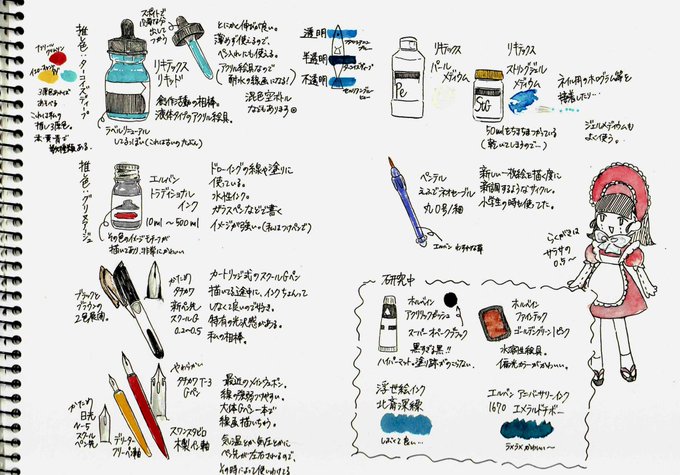 推し色:ターコイズディープ
スポイトで
必要な分
出して
つかう
とにかく伸びが良い。
薄めず使えるので、
ペン入れにも使う。
(アクリル絵具なので
耐水の線画になる!)
混色空ボトル
などもあります◎
リキテックス
リキッド
創作活動の相棒。
液体タイプのアクリル絵具。
ラベルリニューアル
3原色あれば
あそべる
これは私の
推し3原色。
赤・黄・青で
数種類ある。
透明
半透明
不透明
リキテックス
パール
メディウム
Pe
リキテックス
ストリングジェル
メディウム
StG
50mlをちまちまつかっている
(乾いてしまうので…)
ネイル用のホログラム等を
接着したり…
ジェルメディウムも
よく使う。
推し色:グリ&ルージュ
エルバン
トラディショナル
インク
10ml~500ml
その色のイメージモチーフが
描いてあり、非常にかわいい
ドローイングの線や塗りに
使っている。
水性インク。
ガラスペンなどで書く
イメージが強い。(私はつけペンで)
ぺんてる
えふでネオセーブル
丸0号/細
新しい一枚絵を描く度に
新調するようなサイクル。
小学生の時も使ってた。
エルバン
らくがきは
サラサの
0.5~
ブラックと
ブラウンの
2色展開。
かため
タチカワ
新ペン先
スクールG
0.2~0.5
カートリッジ式のスクールGペン
描いてる途中に、インクちょんって
しなくて良いので好き。
特有の光沢感がある。
私の相棒。
かため
日光
N-5
スクール
ペン先
デリーター
フリーペン軸
やわらかい
タチカワ T-3
Gペン
スワンスタビロ
木製ペン軸
最近のメインウェポン。
線の強弱つけやすい。
大体Gペン一本で
線画描いちゃう。
気温とか気圧とかに
ペン先が左右されるので、
その時によって使いわける
研究中
ホルベイン
アクリリックガッシュ
スーパーオペークブラック
黒すぎる黒!!
ハイパーマット。塗り跡がのこらない。
ホルベイン
ファインテック
ゴールデングリーン/ピンク
水溶性絵具。
偏光カラーがかわいい。
浮世絵インク
北斎深緑
しぶくて良い…
エルバン アニバーサリーインク
1670 エメラルドチボー
ラメラメかわいい~